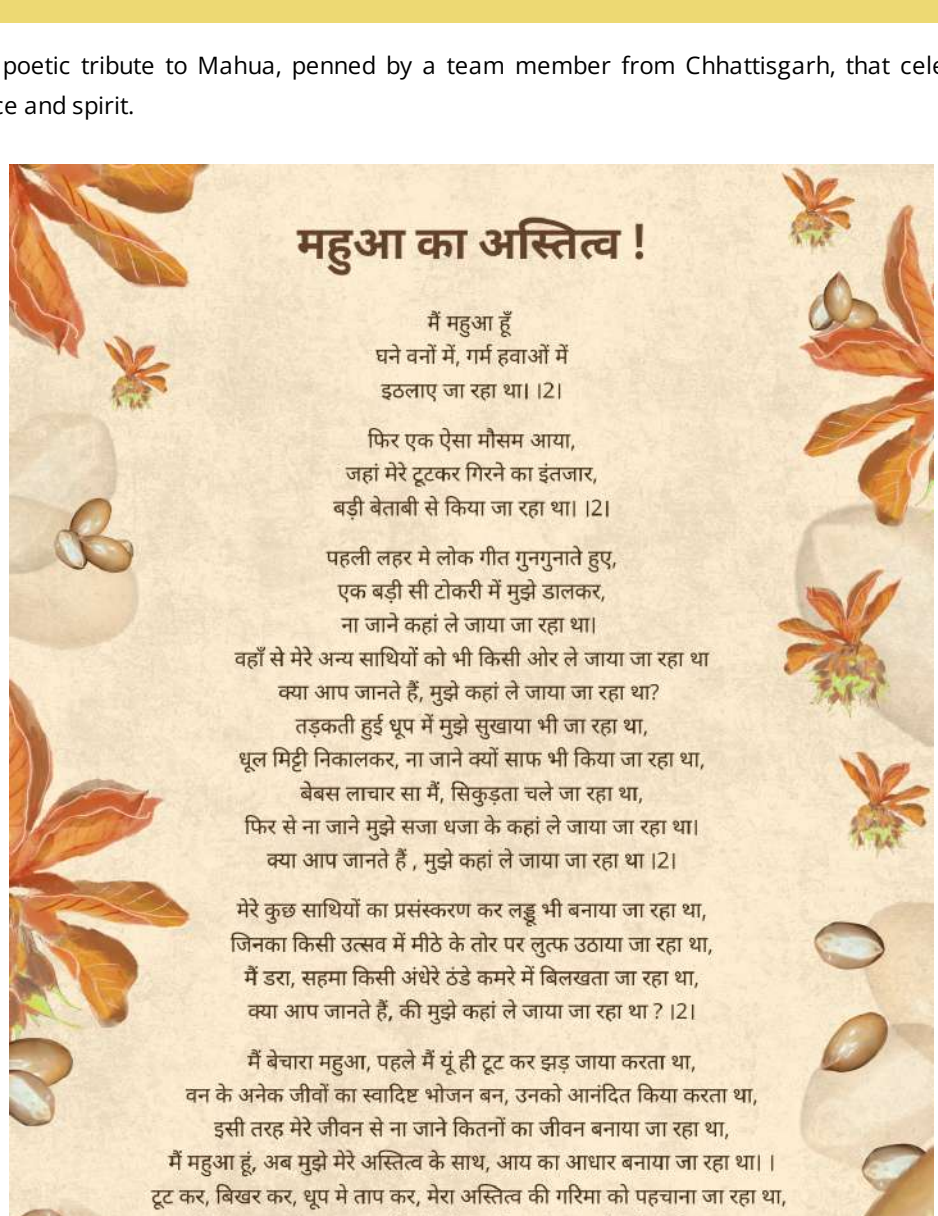 poetic tribute to Mahua, penned by a team member from Chhattisgarh, that cele
ce and spirit.
महुआ का अस्तित्व !
मैं महुआ हूँ
घने वनों में, गर्म हवाओं में
इठलाए जा रहा था। ।2।
फिर एक ऐसा मौसम आया,
जहां मेरे टूटकर गिरने का इंतजार,
बड़ी बेताबी से किया जा रहा था। ।2।
पहली लहर मे लोक गीत गुनगुनाते हुए,
एक बड़ी सी टोकरी में मुझे डालकर,
ना जाने कहां ले जाया जा रहा था।
वहाँ से मेरे अन्य साथियों को भी किसी ओर ले जाया जा रहा था
क्या आप जानते हैं, मुझे कहां ले जाया जा रहा था?
तड़कती हुई धूप में मुझे सुखाया भी जा रहा था,
धूल मिट्टी निकालकर, ना जाने क्यों साफ भी किया जा रहा था,
बेबस लाचार सा मैं, सिकुड़ता चले जा रहा था,
फिर से ना जाने मुझे सजा धजा के कहां ले जाया जा रहा था।
क्या आप जानते हैं , मुझे कहां ले जाया जा रहा था ।2।
मेरे कुछ साथियों का प्रसंस्करण कर लड्डू भी बनाया जा रहा था,
जिनका किसी उत्सव में मीठे के तोर पर लुत्फ उठाया जा रहा था,
मैं डरा, सहमा किसी अंधेरे ठंडे कमरे में बिलखता जा रहा था,
क्या आप जानते हैं, की मुझे कहां ले जाया जा रहा था ? ।2।
मैं बेचारा महुआ, पहले मैं यूं ही टूट कर झड़ जाया करता था,
वन के अनेक जीवों का स्वादिष्ट भोजन बन, उनको आनंदित किया करता था,
इसी तरह मेरे जीवन से ना जाने कितनों का जीवन बनाया जा रहा था,
मैं महुआ हूं, अब मुझे मेरे अस्तित्व के साथ, आय का आधार बनाया जा रहा था। ।
टूट कर, बिखर कर, धूप मे ताप कर, मेरा अस्तित्व की गरिमा को पहचाना जा रहा था,